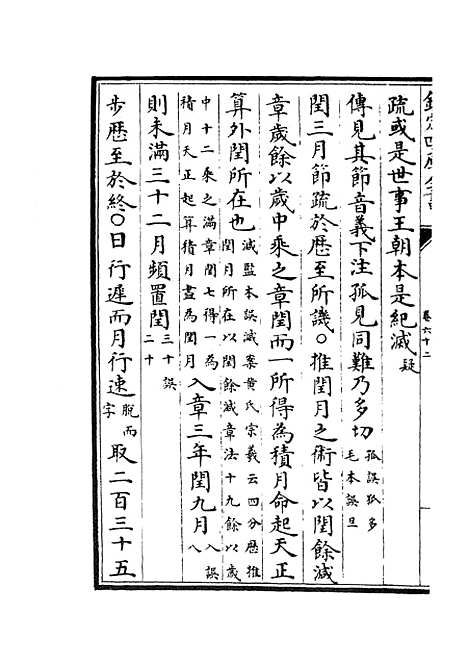 欽定四庫全書
卷六十二
疏或是世事王朝本是紀滅疑
傳見其節音義下注孤見同難乃多切孤誤狐多毛本誤旦
閏三月節疏於歴至所譏〇推閏月之術皆以閏餘減
章歲餘以歲中乘之章閏而一所得為積月命起天正
算外閏所在也減監本誤滅案黄氏宗羲云四分歴推閏月所在以閏餘減章法十九餘以歲
中十二乘之滿章閏七得一為積月天正起算積月盡為閏月入章三年閏九月入誤八
則未滿三十二月頻置閏三十誤二十
步歴至於終〇日行遲而月行速脱而字取二百三十五